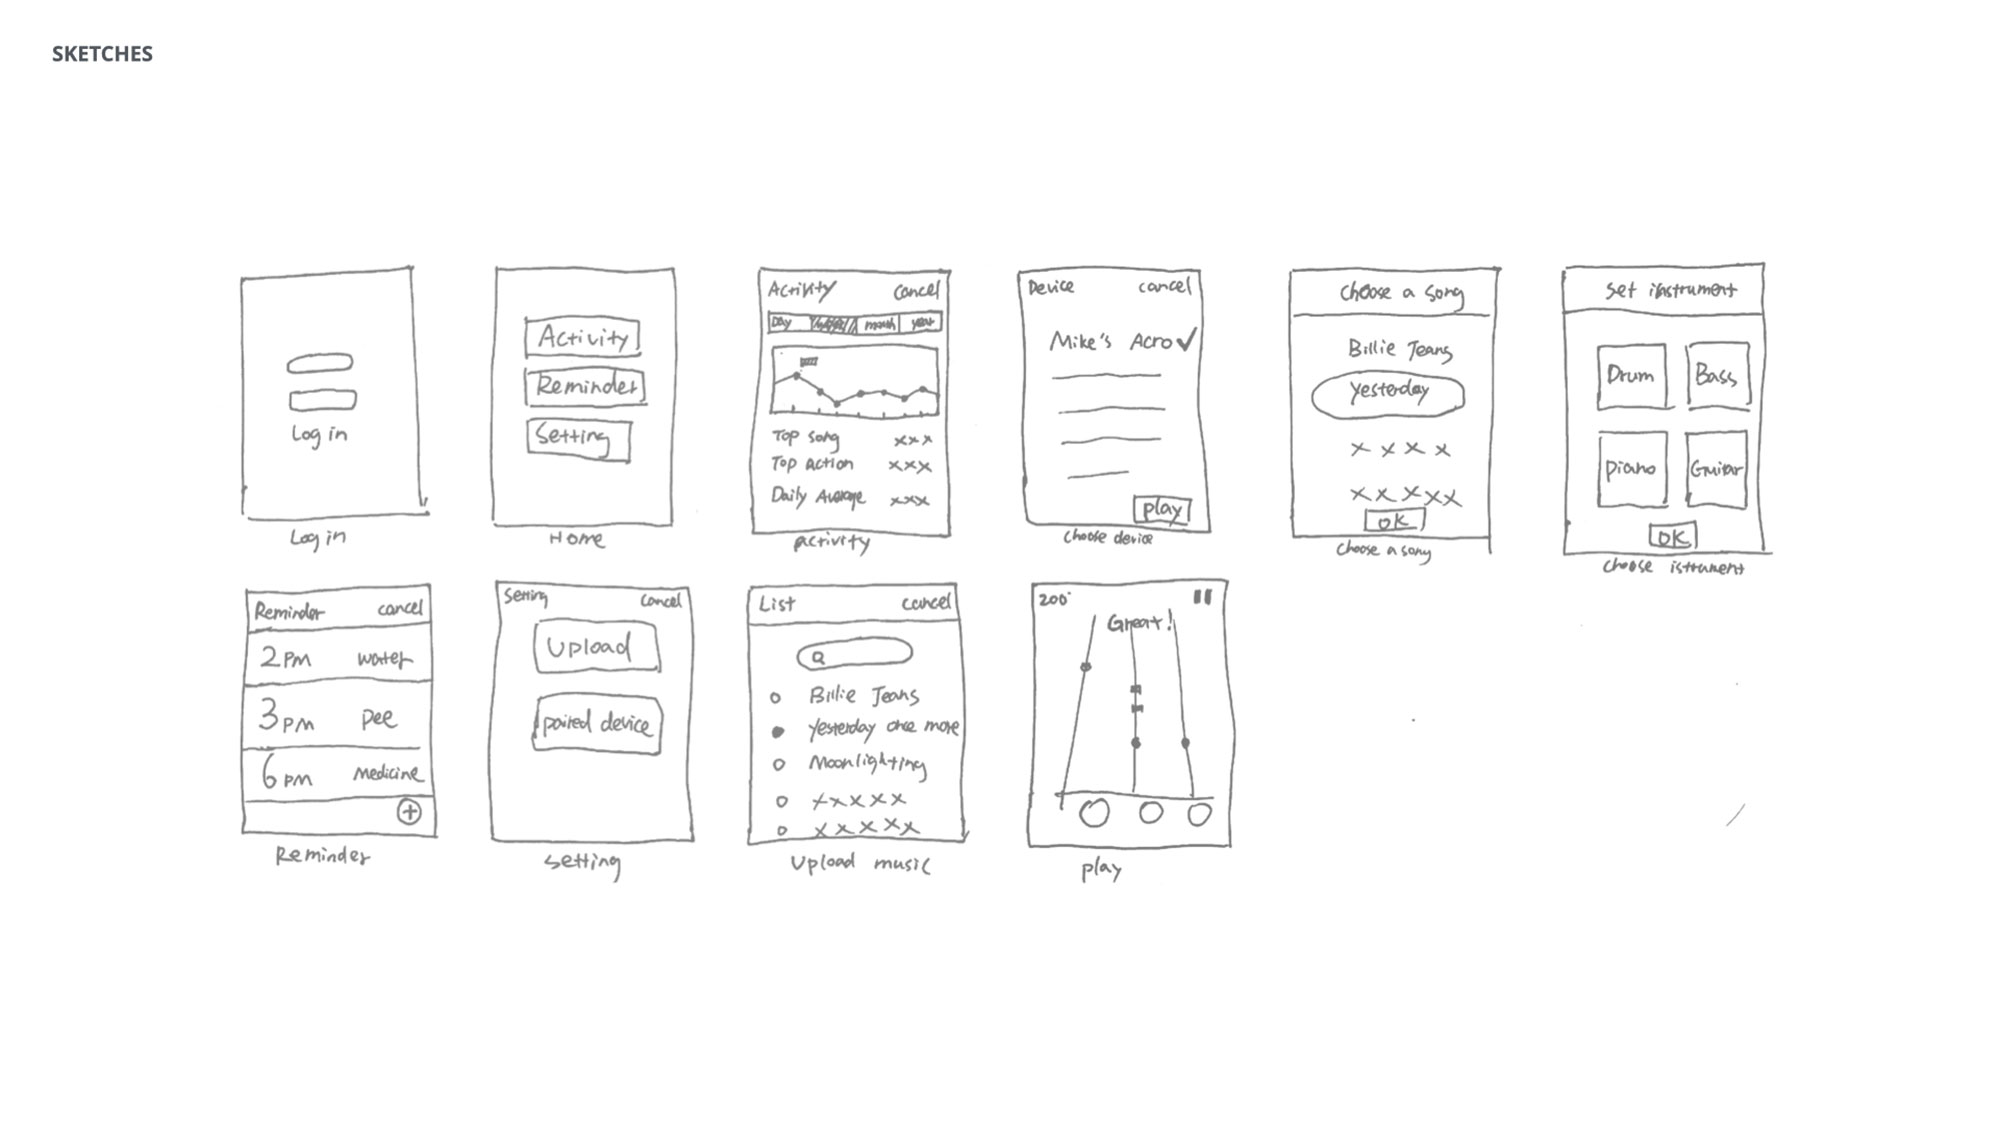 SKETCHES
Log in
Log in
Activity
Reminder
Setting
Home
Activity Cancel
Day month year
Top song xxx
Top Action xxx
Daily Average xxx
Activity
Device cancel
Mike's Acro
play
choose device
choose a song
Billie Jeans
Yesterday
xxxx
xxxxx
OK
choose a song
Set instrument
Drum Bass
Piano Guitar
OK
choose istrument
Reminder cancel
2 PM water
3 PM pee
6 PM Medicine
Reminder
Setting Cancel
Upload
paired device
setting
List cancel
Billie Jeans
Yesterday once more
Moonlighting
xxxxx
xxxxx
Upload music
200
Great!
play